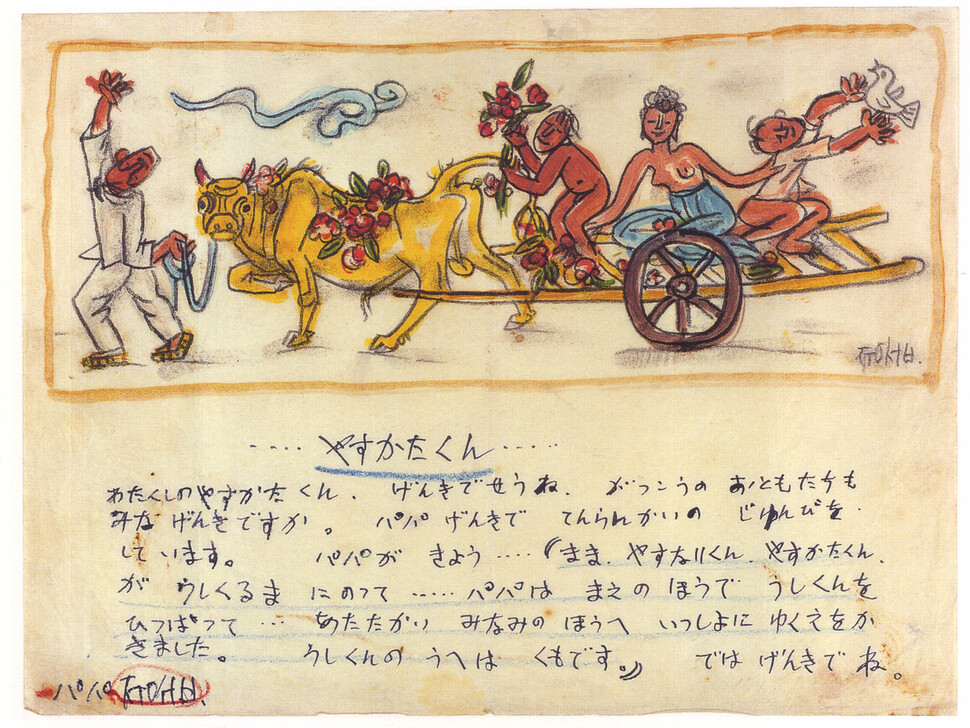 ㅈㅜㅇㅅㅓㅂ.
····· やすかたくん ·····
わたくしのやすかたくん、げんきでせうね、がつこうの おともたちも
みな げんきですか。 パパ げんきで てんらんかいの じゆんびを
しています。 パパが きよう ····『まま、やすなりくん、やすかたくん、
が うしくるま にのって ····· パパは まえの ほうで うしくんを
ひっぱつて … あたたかい みなみの ほうへ いつしよに ゆくえをか
きました。 うしくんの うへは くもです。』 では げんきで ね。
パパ ㅈㅜㅇㅅㅓㅂ.